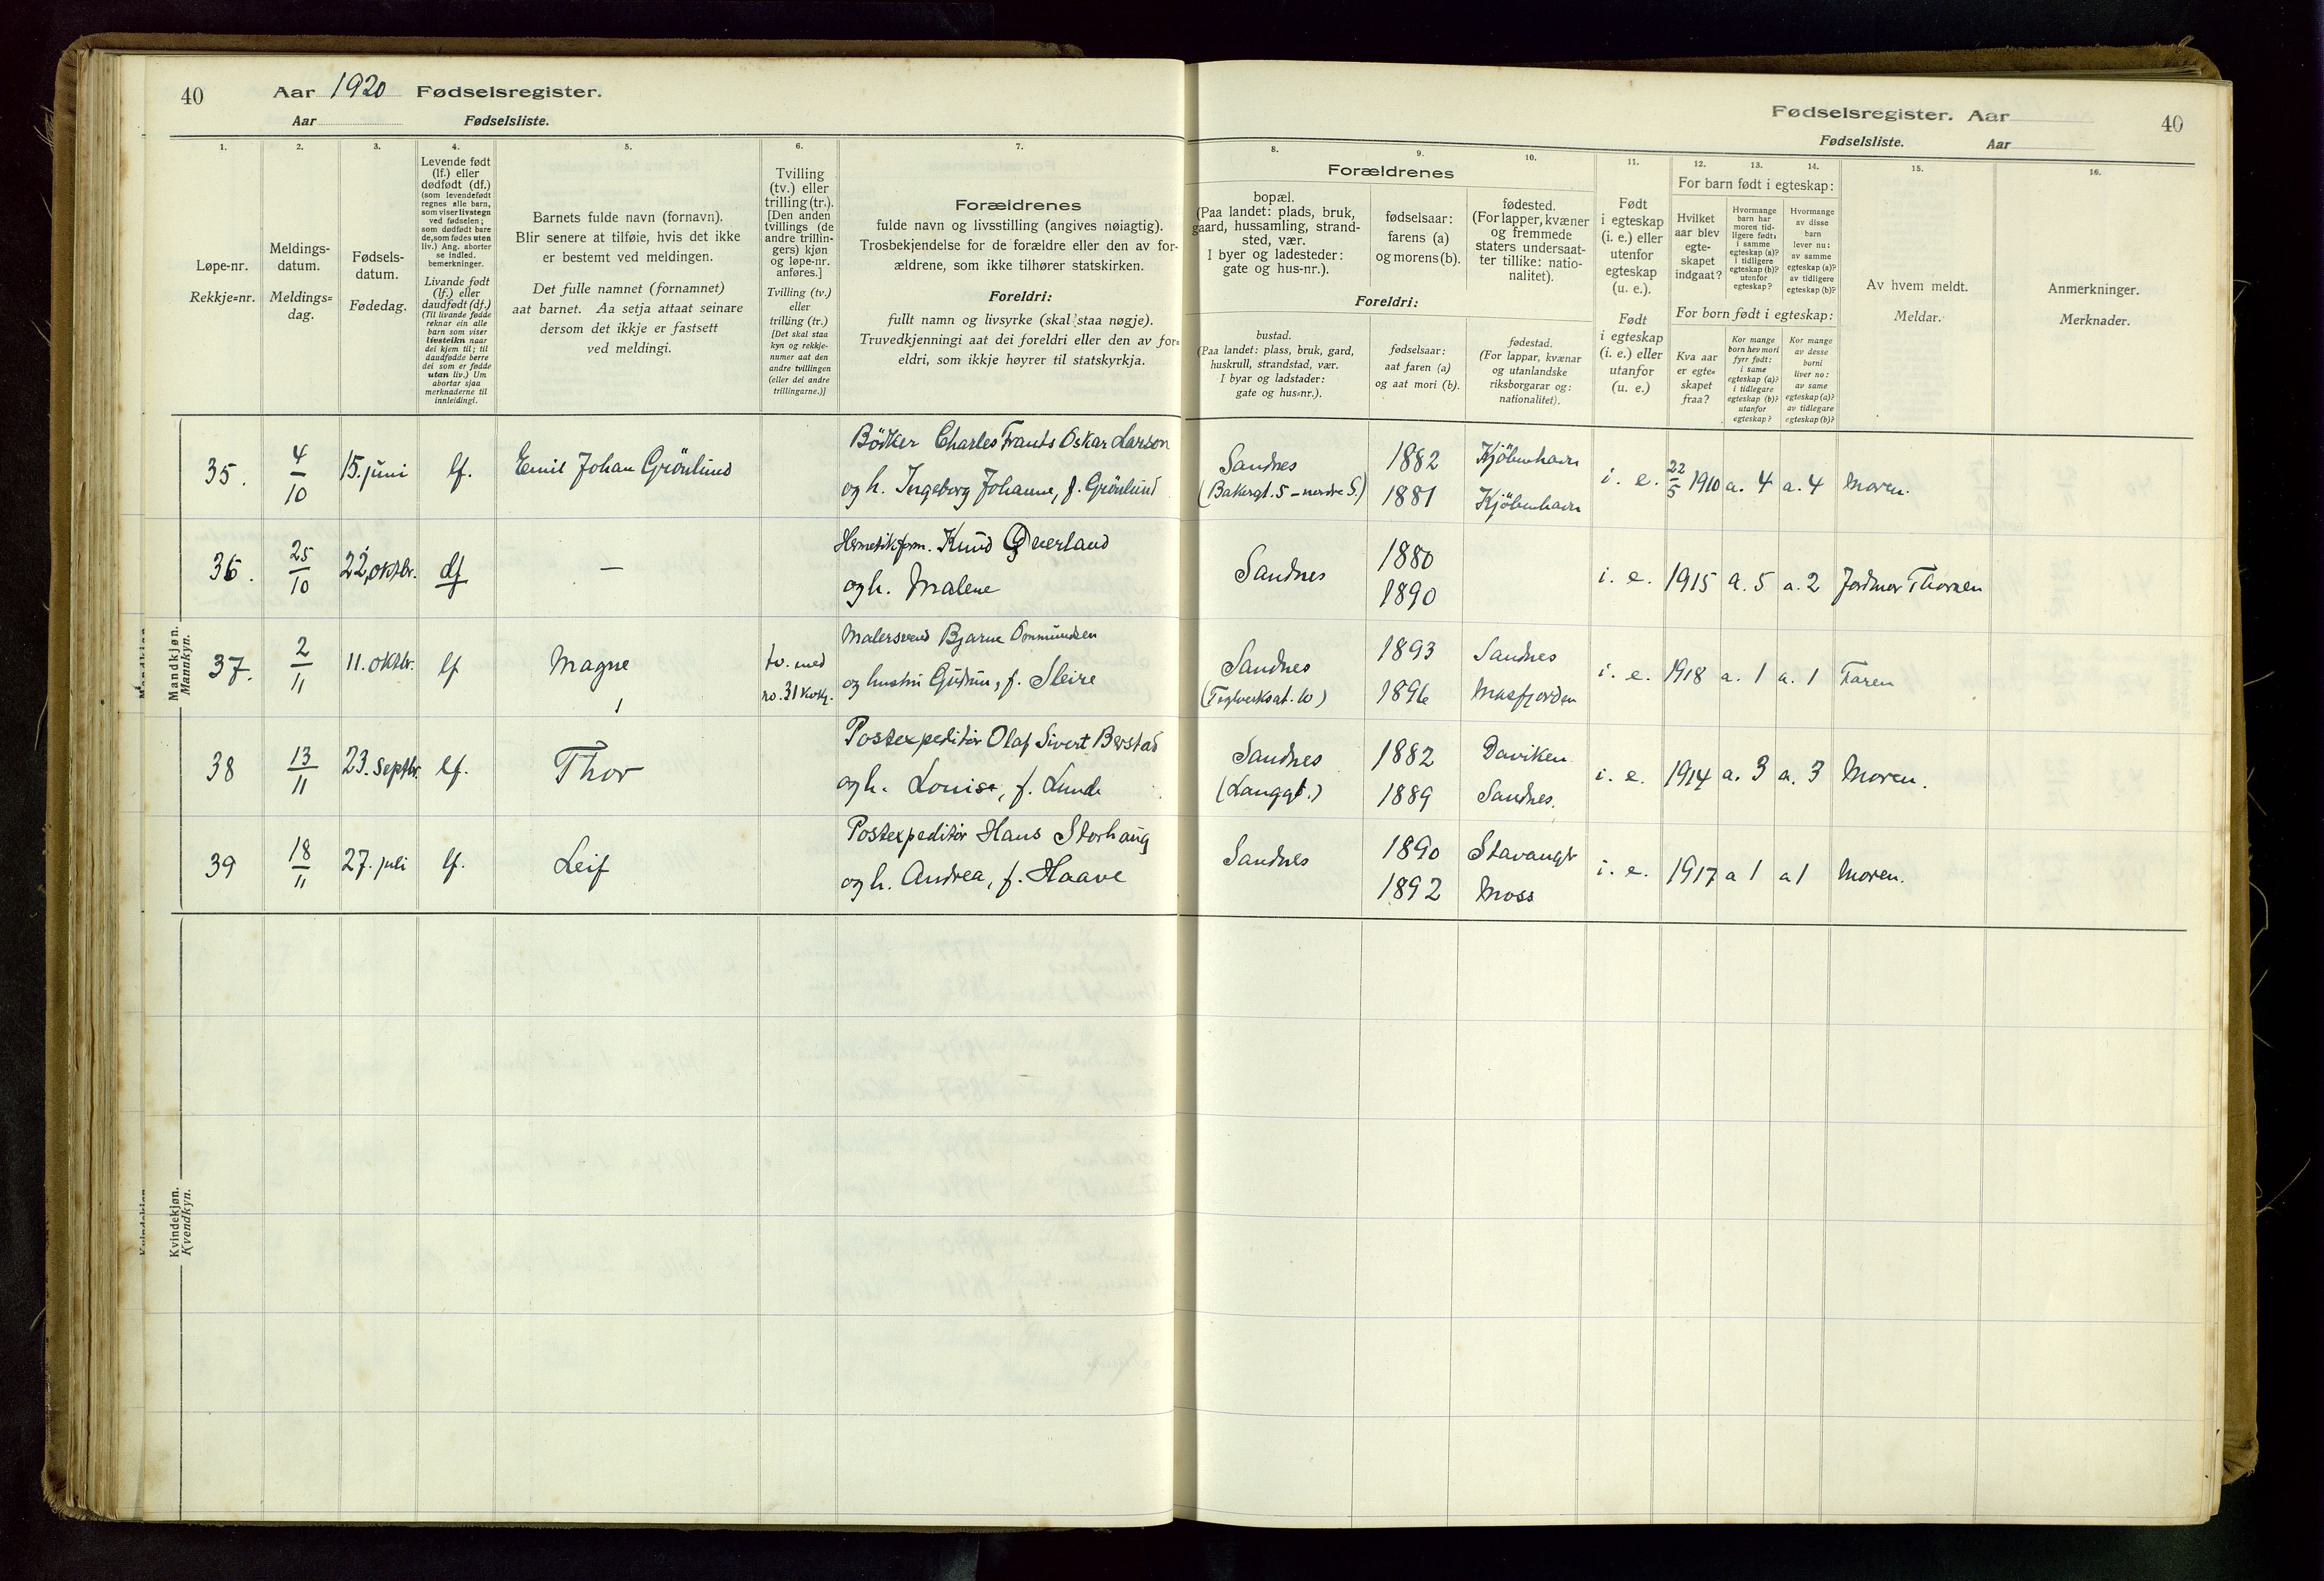 40
Aar 1920 Fødselsregister.
Aar Fødselsliste.
Fødselsregister. Aar
Fødselsliste. Aar
40
1. 2. 3. 4. 5. 6. 7. 8. 9. 10. 11. 12. 13. 14. 15. 16.
Løpe-nr.
Rekkje=nr.
Meldings-
datum.
Meldings=
dag.
Fødsels-
datum.
Fødedag.
Levende født
(lf.) eller
dødfødt (df.)
(som levendefødt
regnes alle barn,
som viser livstegn
ved fødselen;
som dødfødt bare
de, som fødes uten
liv.) Ang. aborter
se indled.
bemerkninger.
Livande født
(lf.) eller
daudfødt (df.)
(Til livande fødde
reknar ein alle
barn som viser
livsteikn naar
dei kjem til; til
daudfødde berre
dei som er fødde
utan liv.) Um
abortar sjaa
merknaderne til
innleidingi.
Barnets fulde navn (fornavn).
Blir senere at tilføie, hvis det ikke
er bestemt ved meldingen.
Det fulle namnet (fornamnet)
aat barnet. Aa setja attaat seinare
dersom det ikkje er fastsett
ved meldingi.
Tvilling
(tv.) eller
trilling (tr.).
[Den anden
tvillings (de
andre trillin-
gers) kjøn
og løpe-nr.
anføres.]
Tvilling (tv.)
eller
trilling (tr.)
[Det skal staa
kyn og rekkje-
numer aat den
andre tvillingen
(eller dei andre
trillingarne.)]
Forældrenes
fulde navn og livsstilling (angives nøiagtig).
Trosbekjendelse for de forældre eller den av for-
ældrene, som ikke tilhører statskirken.
Foreldri:
fullt namn og livsyrke (skal staa nøgje).
Truvedkjenningi aat dei foreldri eller den av for=
eldri, som ikkje høyrer til statskyrkja.
Forældrenes
bopæl.
(Paa landet: plads, bruk,
gaard, hussamling, strand-
sted, vær.
I byer og ladesteder:
gate og hus-nr.).
fødselsaar:
farens (a)
og morens (b).
fødested.
(For lapper, kvæner
og fremmede
staters undersaat-
ter tillike: natio-
nalitet).
Foreldri:
bustad.
(Paa landet: plass, bruk, gard,
huskrull, strandstad, vær.
I byar og ladstader:
gate og hus=nr.).
fødselsaar:
aat faren (a)
og aat mori (b).
fødestad.
(For lappar, kvænar
og utanlandske
riksborgarar og:
nationalitet).
Født
i egteskap
(i. e.) eller
utenfor
egteskap
(u. e.).
Født
i egteskap
(i. e.) eller
utanfor
(u. e.)
For barn født i egteskap:
Hvilket
aar blev
egte-
skapet
indgaat?
Hvormange
barn har
moren tid-
ligere født:
i samme
egteskap (a)?
i tidligere
egteskap (b)?
utenfor
egteskap?
Hvormange
av disse
barn
lever nu:
av samme
egteskap (a)?
av tidligere
egteskap (b)?
For born født i egteskap:
Kva aar
er egte=
skapet
fraa?
Kor mange
born hev mori
fyrr født:
i same
egteskap (a)?
i tidlegare
egteskap (b)?
utanfor
egteskap?
Kor mange
av desse
borni
liver no:
av same
egteskap (a)?
av tidlegare
egteskap (b)?
Av hvem meldt.
Meldar.
Anmerkninger.
Merknader.
Mandkjøn.
Mannkyn.
35. 4/10 15. juni lf. Emil Johan Grönlund Bödker Charles Frants Oskar Larson
og h. Ingeborg Johanne, f. Grönlund
Sandnes (Bakergt. 5 – nordre S.) 1882 1881 Kjöbenhavn Kjöbenhavn i. e. 22/5 1910 a. 4 a. 4 Moren.
36. 25/10 22. oktbr. df — Hermetikform. Knud Överland
og h. Malene
Sandnes 1880 1890 i. e. 1915 a. 5 a. 2 Jordmor Thorsen
37. 2/11 11. oktbr. lf Magne tv. med no. 31 kvk. Malersvend Bjarne Ommundsen
og hustru Gudrun, f. Sleire
Sandnes (Teglverksgt. 10) 1893 1896 Sandnes Masfjorden i. e. 1918 a. 1 a. 1 Faren
38 13/11 23. septbr. lf. Thor Postexpeditør Olaf Sivert Berstad
og h. Louise, f. Lunde
Sandnes (Langgt.) 1882 1889 Daviken Sandnes. i. e. 1914 a. 3 a. 3 Moren.
39 18/11 27. juli lf. Leif Postexpeditør Hans Storhaug
og h. Andrea, f. Haave
Sandnes 1890 1892 Stavanger Moss i. e. 1917 a 1 a 1 Moren.
Kvindekjøn.
Kvendkyn.